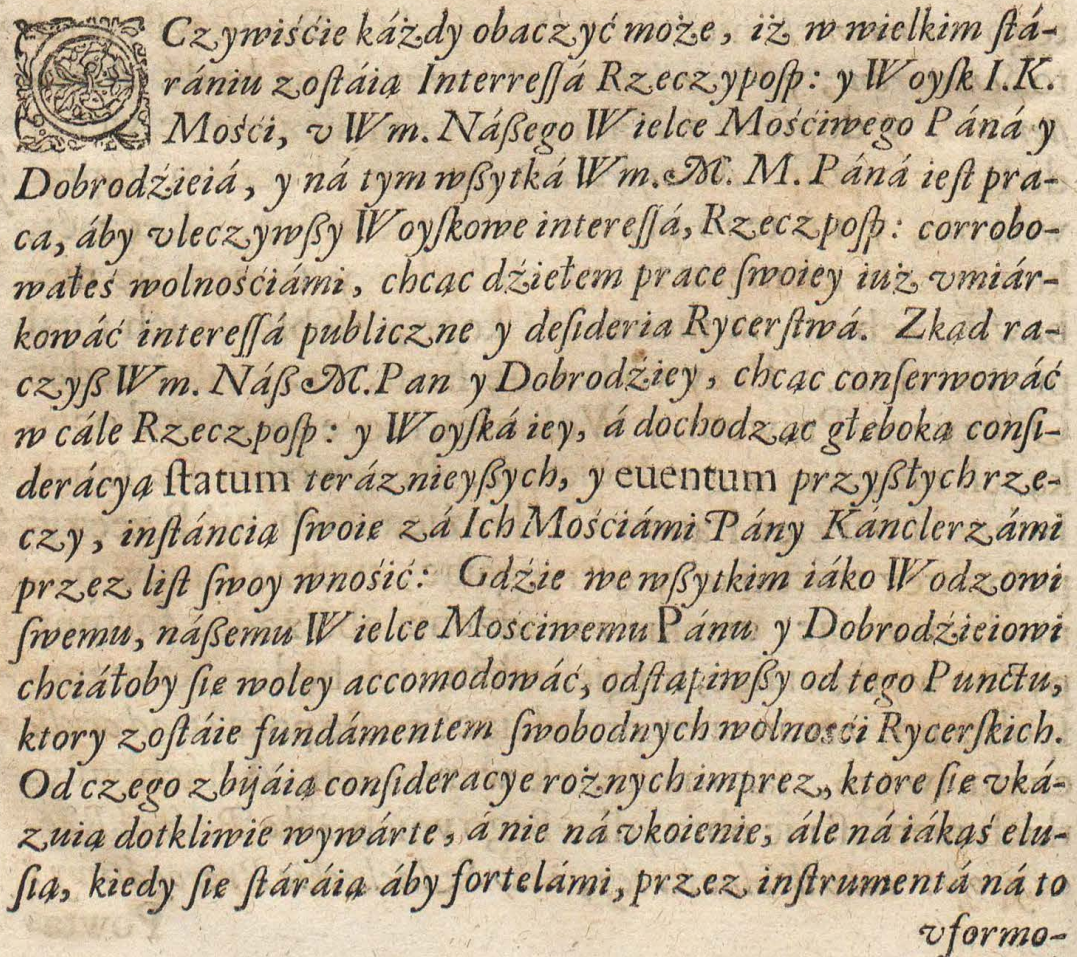 OCzywiśćie káżdy obaczyć może, iż w wielkim ſtá-
rániu zoſtáią Interreſſá Rzeczypoſp: y Woyſk I.K.
Mośći, v Wm. Náßego Wielce Mośćiwego Páná y
Dobrodźieiá, y ná tym wßytká Wm. M. M. Páná ieſt pra-
ca, áby vleczywßy Woyſkowe intereſſá, Rzeczpoſp: corrobo-
wałeś wolnośćiámi, chcąc dźiełem prace ſwoiey iuż vmiár-
kowáć intereſſá publiczne y deſideria Rycerſtwá. Zkąd ra-
czyß Wm. Náß M. Pan y Dobrodźiey, chcąc conſerwowáć
w cále Rzeczpoſp: y Woyſká iey, á dochodząc głęboką conſi-
derácyą ſtatum teráznieyßych, y euentum przyßłych rze-
czy, inſtáncią ſwoię zá Ich Mośćiámi Pány Kánclerzámi
przez liſt ſwoy wnośić: Gdźie we wßytkim iáko Wodzowi
ſwemu, náßemu Wielce Mośćiwemu Pánu y Dobrodźieiowi
chciáłoby ſię woley accomodowáć, odſtąpiwßy od tego Punctu,
ktory zoſtáie fundámentem ſwobodnych wolnosći Rycerſkich.
Od czego zbijáią conſideracye rożnych imprez, ktore ſię vká-
zuią dotkliwie wywárte, á nie ná vkoienie, ále ná iákąś elu-
ſią, kiedy ſię ſtáráią áby fortelámi, przez inſtrumentá ná to
vformo-